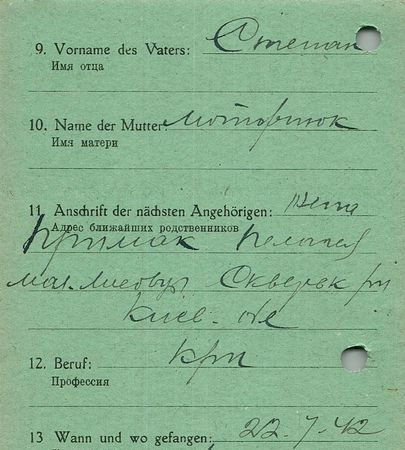 9. Vorname des Vaters: Степан
Имя отца
10. Name der Mutter: Моторнюк
Имя матери
11 Anschrift der nächsten Angehörigen: жена
Адрес ближайших родственников
Примак Пелагея
Сквирск рн
Киев. обл
12. Beruf: крп
Профессия
13 Wann und wo gefangen: 22.7.42